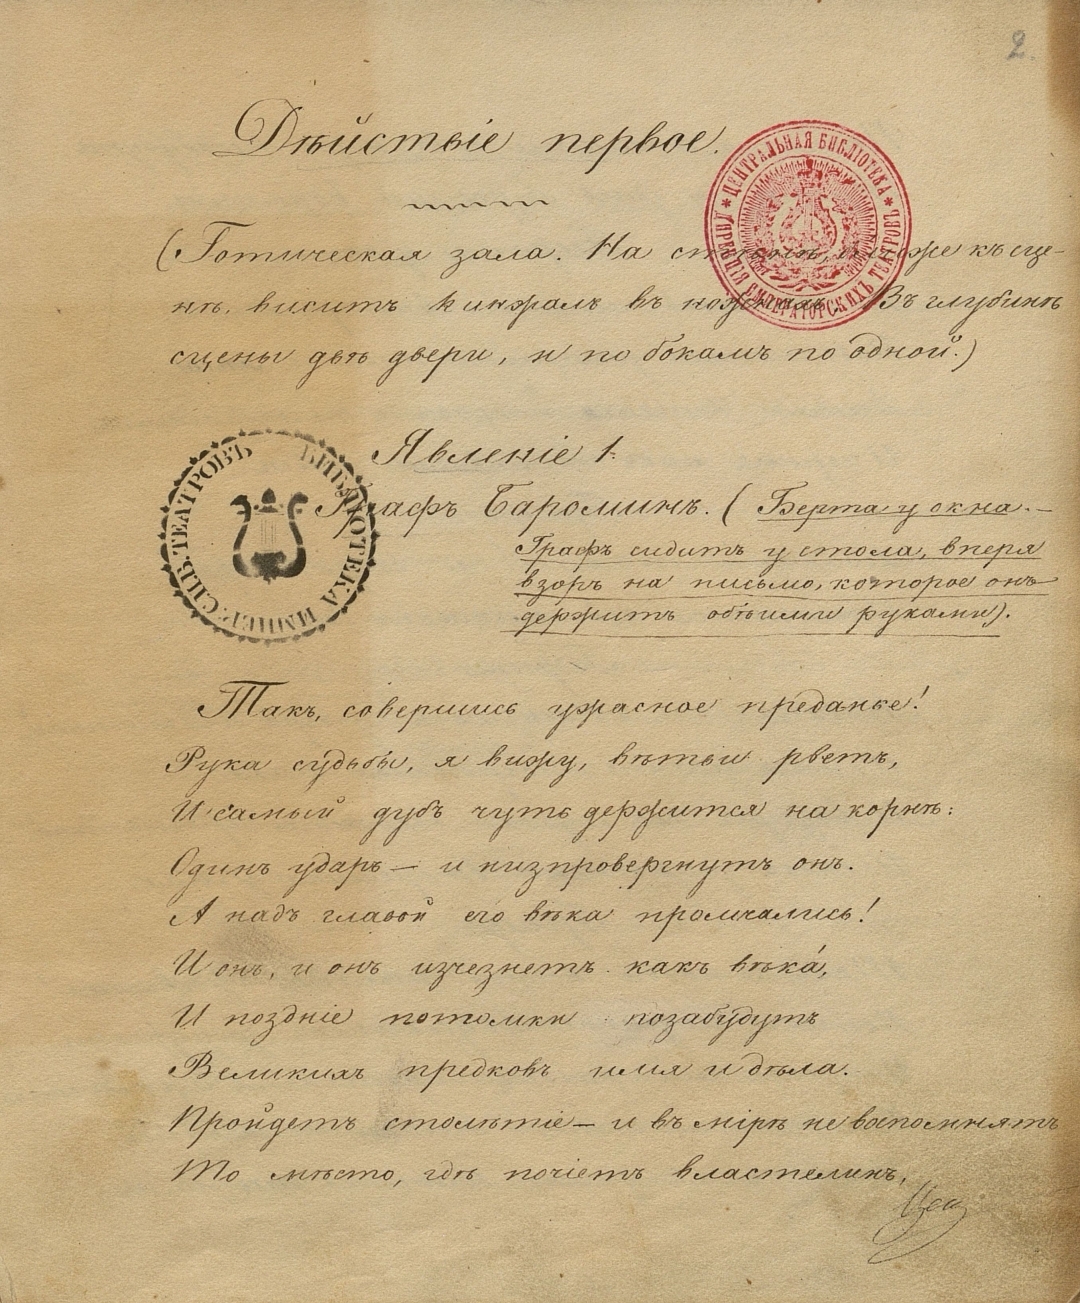 2
Дѣйствіе первое.
ЦЕНТРАЛЬНАЯ БИБЛІОТЕКА * ДИРЕКЦІЯ ИМПЕРАТОРСКИХЪ ТЕАТРОВЪ *
(Готическая зала. На стѣнѣ, ближе къ сце-
нѣ, виситъ кинжалъ въ ножнахъ. Въ глубинѣ
сцены двѣ двери, и по бокамъ по одной.)
Явленіе 1.
БИБЛІОТЕКА ИМПЕР: СПБ. ТЕАТРОВЪ
Графъ Боротинъ. (Берта у окна.—
Графъ сидитъ у стола, вперя
взоръ на письмо, которое онъ
держитъ обѣими руками).
Такъ, совершись ужасное преданье!
Рука судьбы, я вижу, вѣтьви рветъ,
И самый дубъ чуть держится на корнѣ:
Одинъ ударъ — и низпровергнутъ онъ.
А надъ главой его вѣка промчались!
И онъ, и онъ изчезнетъ какъ вѣка,
И поздніе потомки позабудутъ
Великихъ предковъ имя и дѣла.
Пройдетъ столѣтіе — и въ мірѣ не воспомнятъ
То мѣсто, гдѣ почіетъ властелинъ,